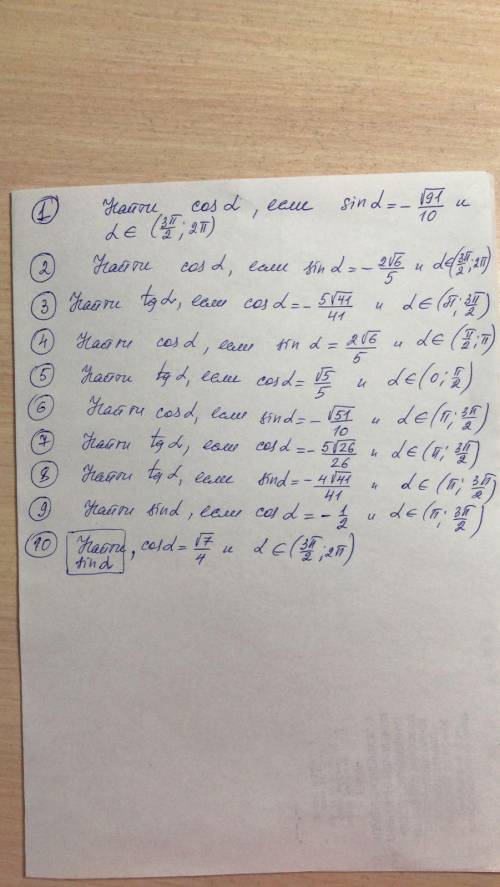 1 Найти cos α, если sin α = -√91/10 и
α ∈ (3π/2; 2π)
2 Найти cos α, если sin α = -2√6/5 и α ∈ (3π/2; 2π)
3 Найти tg α, если cos α = -5√41/41 и α ∈ (π; 3π/2)
4 Найти cos α, если sin α = 2√6/5 и α ∈ (π/2; π)
5 Найти tg α, если cos α = √5/5 и α ∈ (0; π/2)
6 Найти cos α, если sin α = -√51/10 и α ∈ (π; 3π/2)
7 Найти tg α, если cos α = -5√26/26 и α ∈ (π; 3π/2)
8 Найти tg α, если sin α = -4√41/41 и α ∈ (π; 3π/2)
9 Найти sin α, если cos α = -1/2 и α ∈ (π; 3π/2)
10 Найти, cos α = √7/4 и α ∈ (3π/2; 2π)
sin α